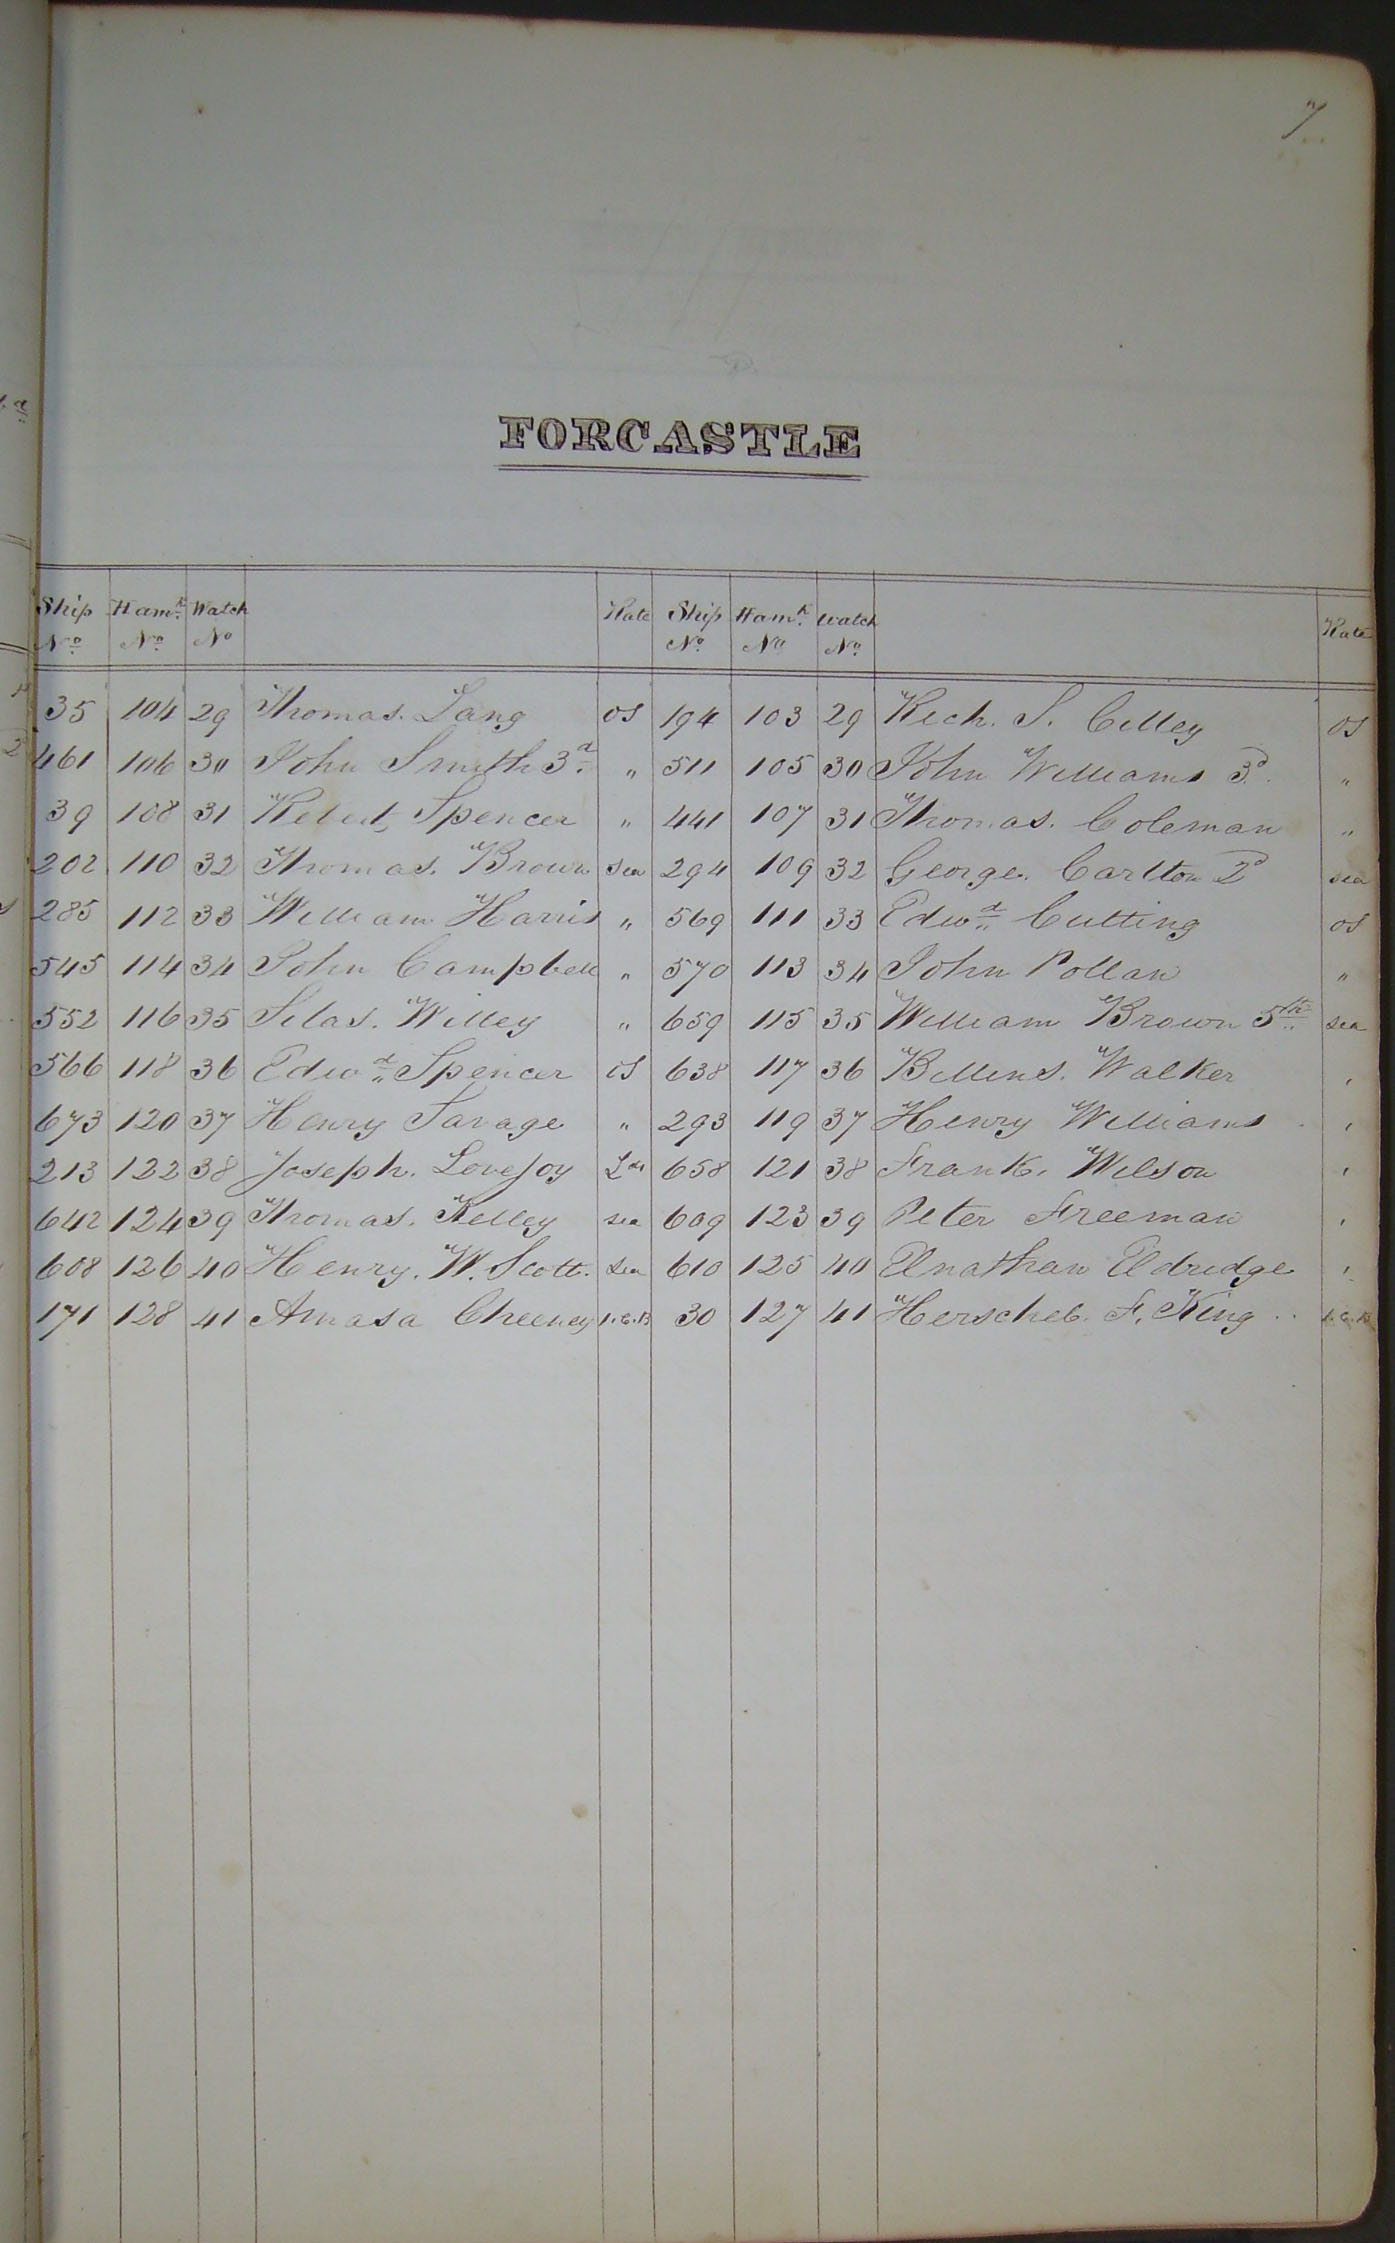 7
FORCASTLE
Ship No Hamk No Watch No Rate Ship No Hamk No Watch No Rate
35 104 29 Thomas. Lang OS 194 103 29 Rich. S. Cilley OS
461 106 30 John Smith 3d " 511 105 30 John Williams 3d "
39 108 31 Robert, Spencer " 441 107 31 Thomas. Coleman "
202 110 32 Thomas. Brown sea 294 109 32 George. Carlton 2d sea
285 112 33 William Harris " 569 111 33 Edwd Cutting OS
545 114 34 John Campbell " 570 113 34 John Pollan "
552 116 35 Silas. Willey " 659 115 35 William Brown 5th sea
566 118 36 Edwd Spencer OS 638 117 36 Billins. Walker '
673 120 37 Henry Savage " 293 119 37 Henry Williams '
213 122 38 Joseph. Lovejoy Lds 658 121 38 Frank. Wilson '
642 124 39 Thomas. Kelley sea 609 123 39 Peter Freeman '
608 126 40 Henry. W. Scott. sea 610 125 40 Elnathan Eldridge '
171 128 41 Amasa Cheeney 1.C.B 30 127 41 Herschel. F. King 1.C.B